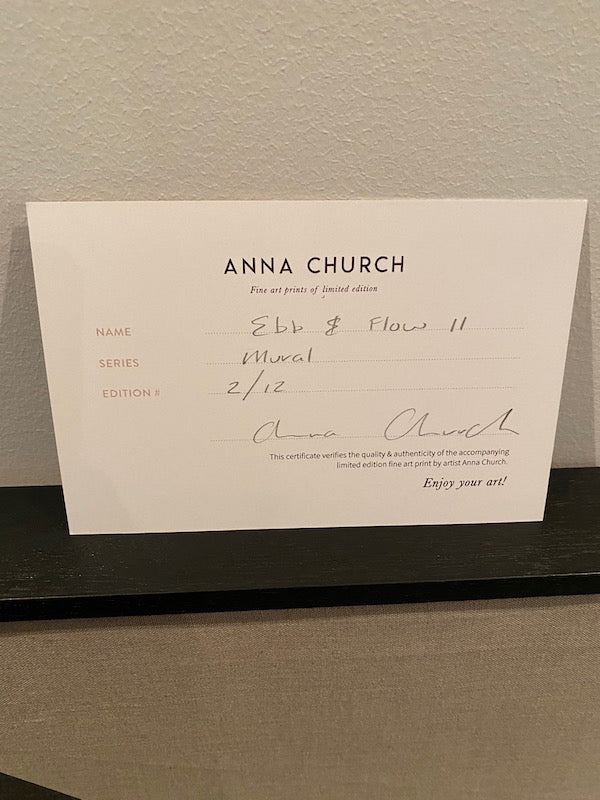 ANNA CHURCH
Fine art prints of limited edition
NAME Ebb & Flow II
SERIES Mural
EDITION # 2/12
Anna Church
This certificate verifies the quality & authenticity of the accompanying
limited edition fine art print by artist Anna Church.
Enjoy your art!